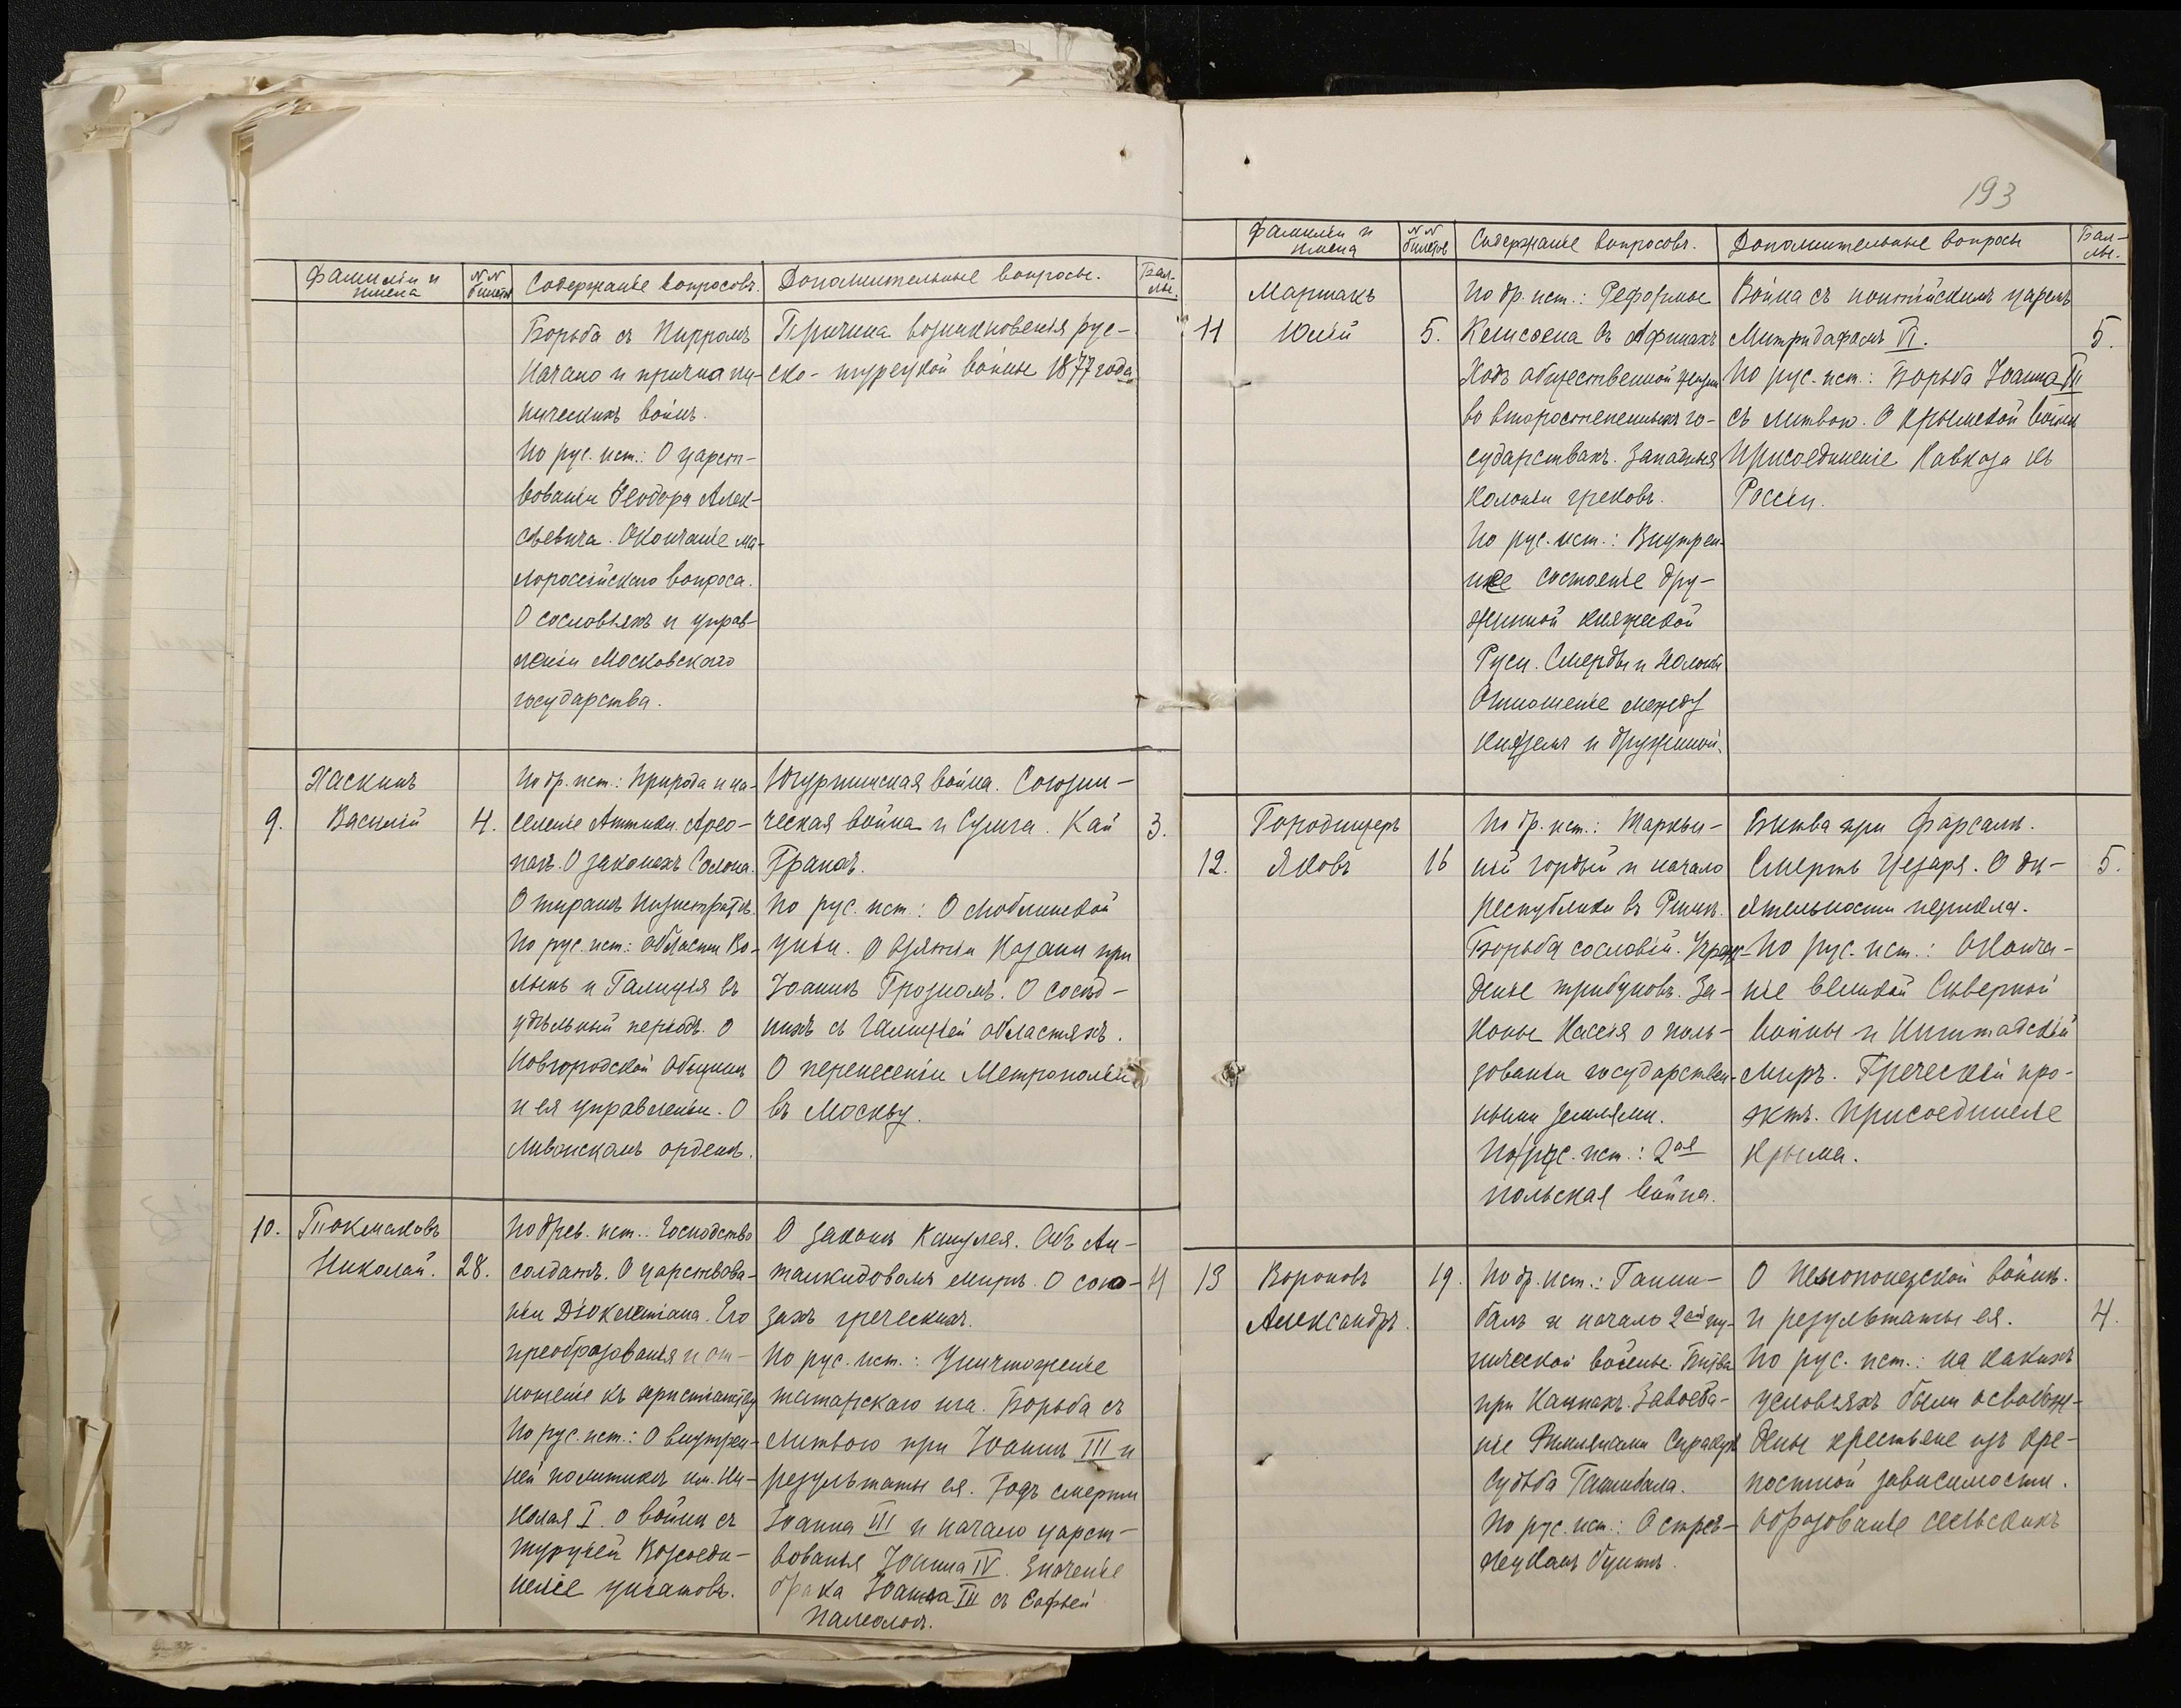 Фамиліи и имена
N N билетов
Содержаніе вопросовъ.
Дополнительные вопросы.
Баллы.
Борьба съ Пирромъ
Начало и причина пу-
ническихъ войнъ.
По рус. ист.: О царст-
вованіи Ѳеодора Алек-
сѣевича. Окончаніе ма-
лороссійскаго вопроса.
О сословіяхъ и управ-
леніи Московскаго
государства.
Причина возникновенія рус-
ско-турецкой войны 1877 года
9.
Хаскинъ
Василій
4.
По др. ист.: Природа и на-
селеніе Аттики. Арео-
пагъ. О законахъ Солона.
О тиранѣ Пизистратѣ.
По рус. ист.: Области Во-
лынь и Галиція въ
удѣльный періодъ. О
Новгородской общинѣ
и ея управленіи. О
Ливонскомъ орденѣ.
Югуртинская война. Союзни-
ческая война и Сулла. Кай
Гракхъ.
По рус. ист.: О Люблинской
уніи. О взятіи Казани при
Іоаннѣ Грозномъ. О сосѣд-
нихъ съ Галиціей областяхъ.
О перенесеніи Метрополіи
въ Москву.
3.
10.
Токмаковъ
Николай.
28.
По древ. ист.: Господство
солдатъ. О царствова-
ніи Діоклетіана. Его
преобразованія и от-
ношеніе къ христіанству
По рус. ист.: О внутрен-
ней политикѣ им. Ни-
колая I. О войнѣ съ
Турціей Возсоеди-
неніе уніатовъ.
О законѣ Канулея. Объ Ан-
талкидовомъ мирѣ. О сою-
захъ греческихъ.
По рус. ист.: Уничтоженіе
татарскаго ига. Борьба съ
Литвою при Іоаннѣ III и
результаты ея. Годъ смерти
Іоанна III и начало царст-
вованія Іоанна IV. Значеніе
брака Іоанна III съ Софьей
Палеологъ.
4
193
Фамиліи и имена
N N билетов
Содержаніе вопросовъ.
Дополнительные вопросы
Баллы.
11
Маршакъ
Юлій
5.
По др. ист.: Реформы
Клисѳена въ Афинахъ
Ходъ общественной жизни
во второстепенныхъ го-
сударствахъ. Западныя
колоніи грековъ.
По рус. ист.: Внутрен-
нее состояніе дру-
жинной княжеской
Руси. Смерды и Холопы
Отношеніе между
княземъ и дружиной.
Война съ понтійскимъ царемъ
Митридатомъ VI.
По рус. ист.: Борьба Іоанна III
съ Литвою. О Крымской войнѣ
Присоединеніе Кавказа къ
Россіи.
5.
12.
Городищеръ
Яковъ
16
По др. ист.: Тарквы-
ній гордый и начало
республики въ Римѣ.
Борьба сословій. Учреж-
деніе трибуновъ. За-
коны Кассія о поль-
зованіи государствен-
ными землями.
По рус. ист.: 2ая
польская война.
Битва при Фарсалѣ.
Смерть Цезаря. О дѣ-
ятельности Перикла.
По рус. ист.: Оконча-
ніе великой Сѣверной
войны и Ништадскій
миръ. Греческій про-
эктъ. Присоединеніе
Крыма.
5.
13
Вороновъ
Александръ.
19.
По др. ист.: Ганни-
балъ и начало 2ой пу-
нической войны. Битва
при Каннахъ. Завоева-
ніе Римлянами Сиракузъ
Судьба Ганнибала.
По рус. ист.: О стрѣ-
лецкомъ бунтѣ.
О Пелопонезской войнѣ.
и результаты ея.
По рус. ист.: на какихъ
условіяхъ были освобож-
дены крестьяне изъ крѣ-
постной зависимости.
Образованіе сельскихъ
4.